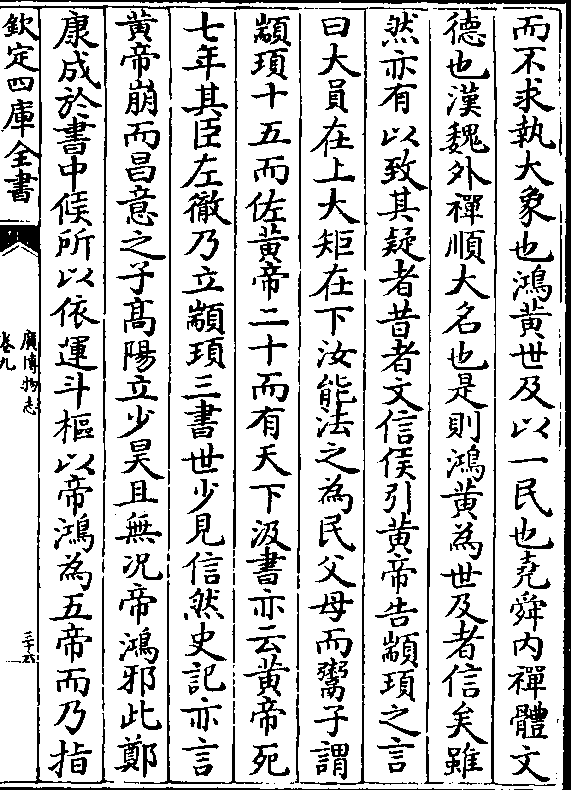 而不求執大象也鴻黃世及以一民也堯舜内禪體文
德也漢魏外禪順大名也是則鴻黃為世及者信矣雖
然亦有以致其疑者昔者文信侯引黃帝告顓頊之言
曰大員在上大矩在下汝能法之為民父母而鬻子謂
顓頊十五而佐黃帝二十而有天下汲書亦云黃帝死
七年其臣左徹乃立顓頊三書世少見信然史記亦言
黃帝崩而昌意之子髙陽立少昊且無况帝鴻邪此鄭
康成於書中候所以依運斗樞以帝鴻為五帝而乃指
欽定四庫全書
廣博物志
卷九
三十六